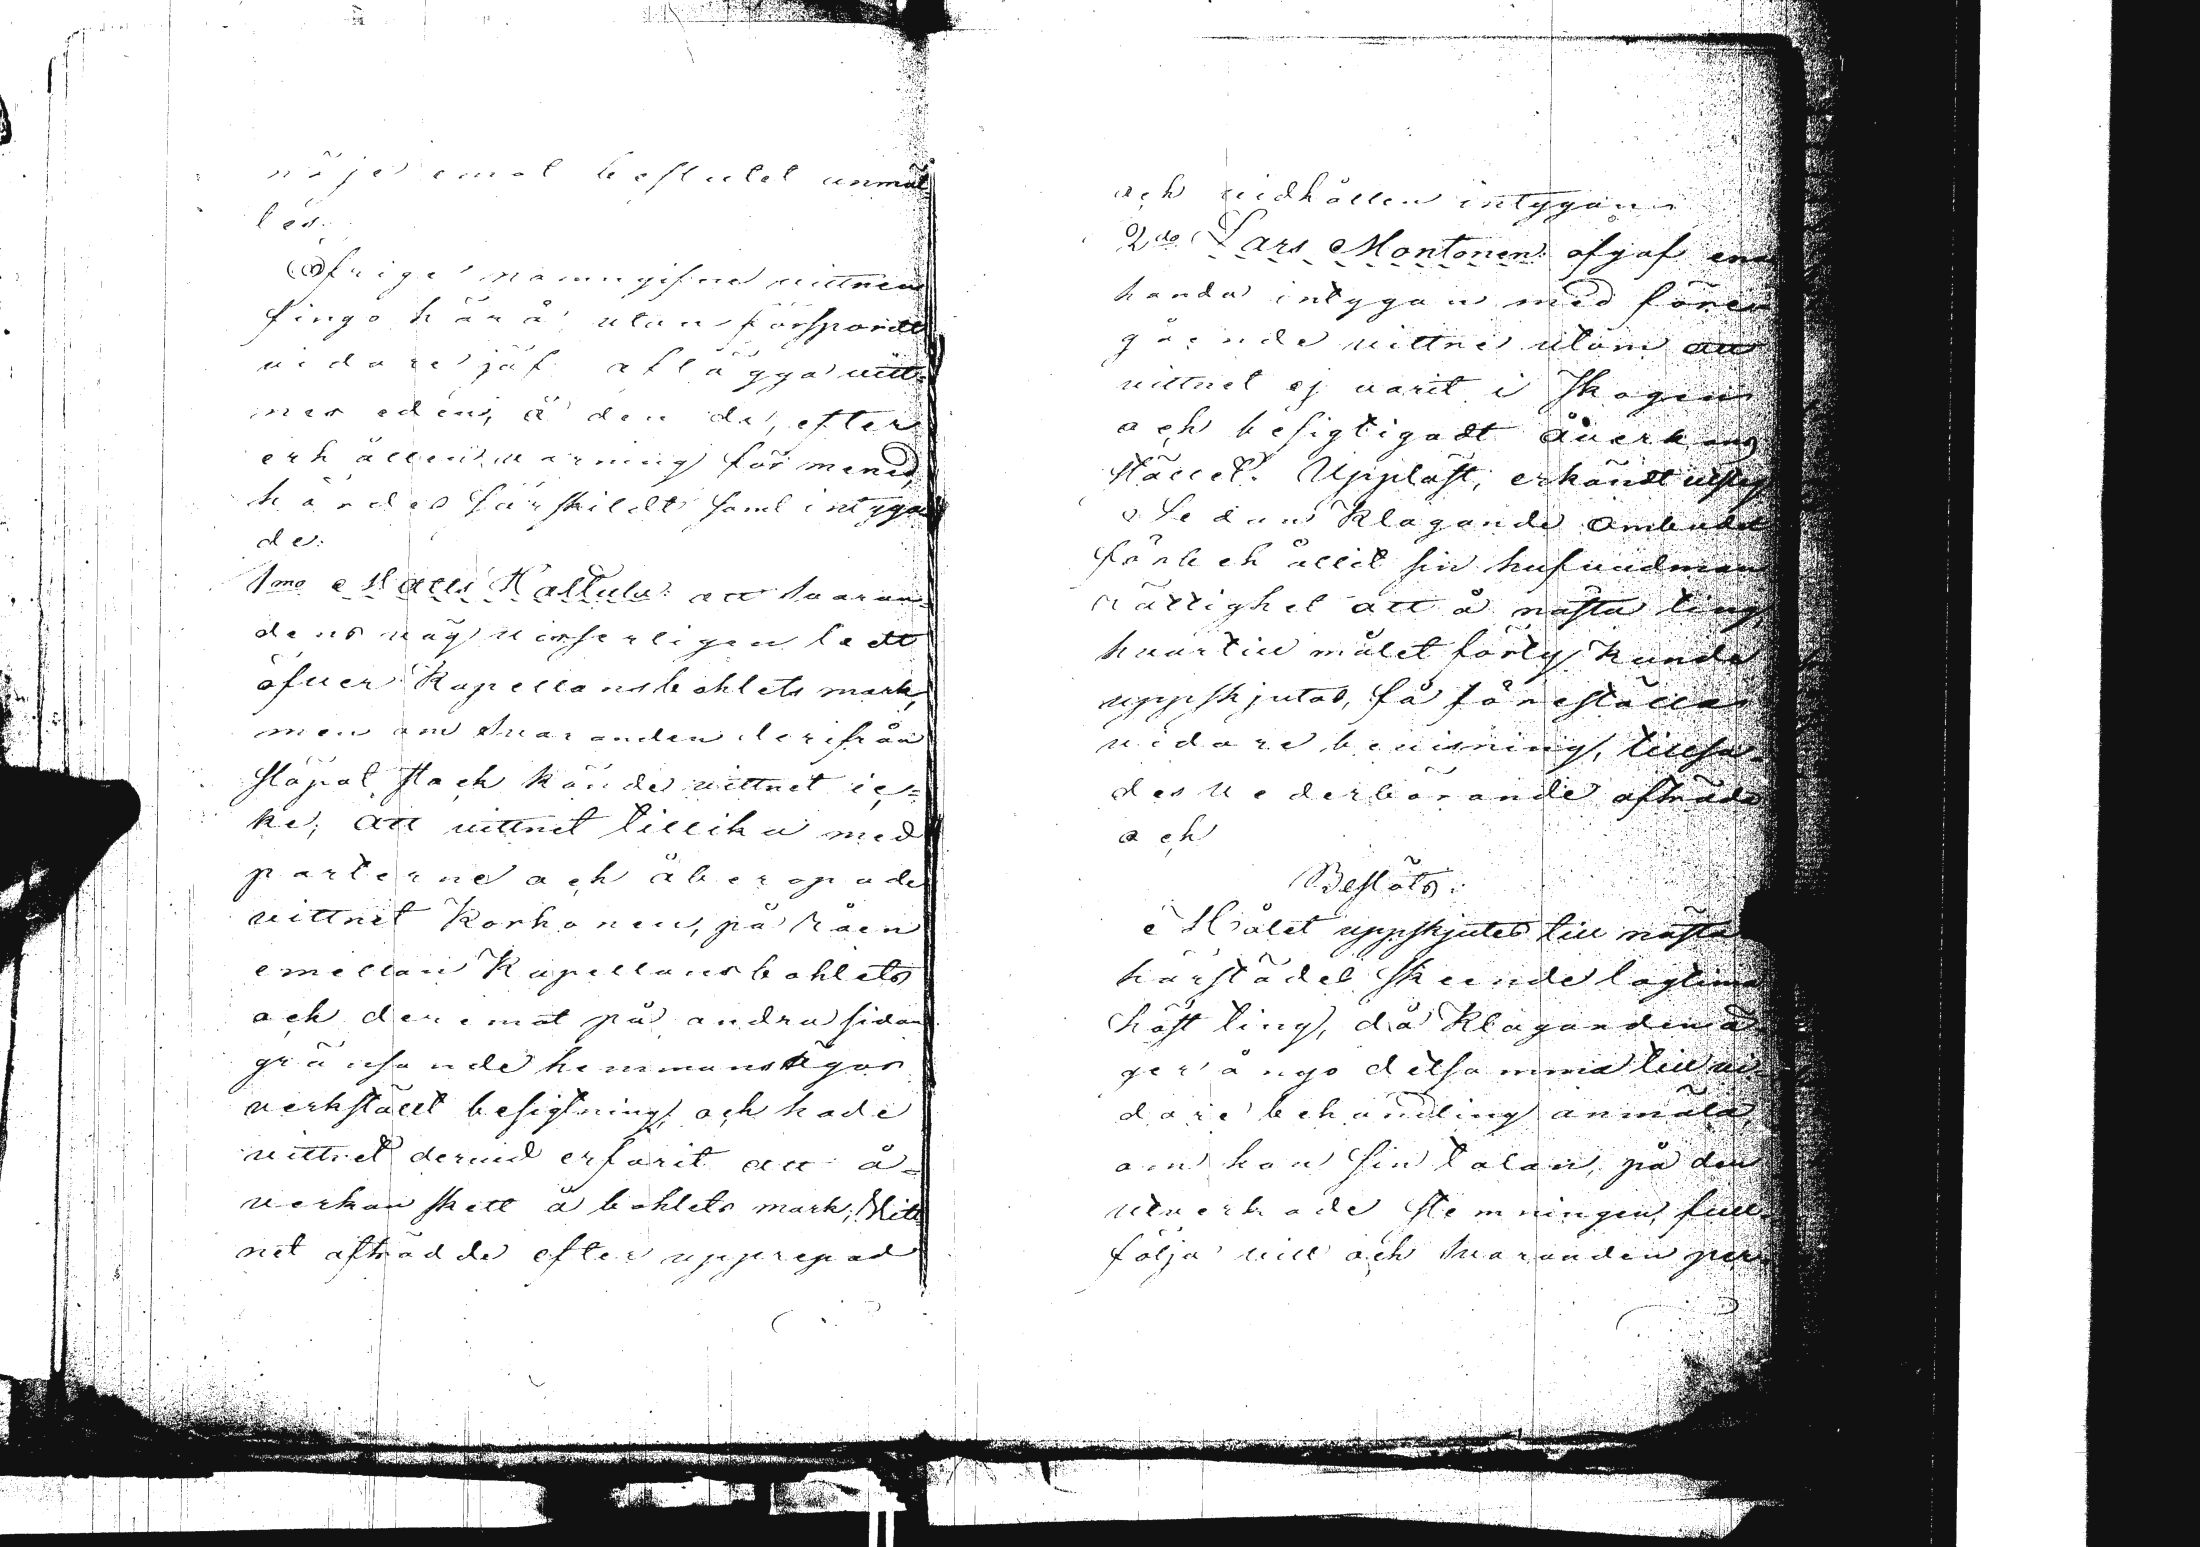 nöje emot beslutet anmäl=
les.
Öfrige namngifne vittnen
fingo härå utan förspordt
vidare jäf aflägga vitt=
nes eden, å den de, efter
erhållen varning för mened,
hördes särskildt samt intyga
de:
1mo Matts Kattulu: att Svaran=
dens väg visserligen ledt
öfver Kapellansbohlets mark,
men om Svaranden derifrån
släpat stock kände vittnet ic=
ke; att vittnet tillika med
parterne och åberopade
vittnet Korhonen, på råen
emellan Kapellansbohlets
och deremot på andra sidan
gränsande hemmansägor
verkställt besigtning, och hade
vittnet dervid erfarit att å=
verkan skett å bohlets mark; Vitt
net afträdde efter upprepad
och vidhållen intygan.
2do Lars Montonen: afgaf ena
handa intygan med före
gående vittne utom att
vittnet ej varit i Skogen
och besigtigadt åverkans
stället. Uppläst, erkändt
Sedan Klagande Ombudet
förbehållit sin hufvudman
rättighet att å nästa ting,
hvartill målet förty kunde
uppskjutas, få föreställa
vidare bevisning, tillsa=
des Vederbörande afträda
och
Beslöts:
Målet uppskjutes till nästa
härstädes skeende lagtima
höst ting, då Klaganden ä
ger å nyo detsamma till vi=
dare behandling anmäla,
om han sin talan, på den
utverkade stemningen, full=
följa vill och Svaranden per